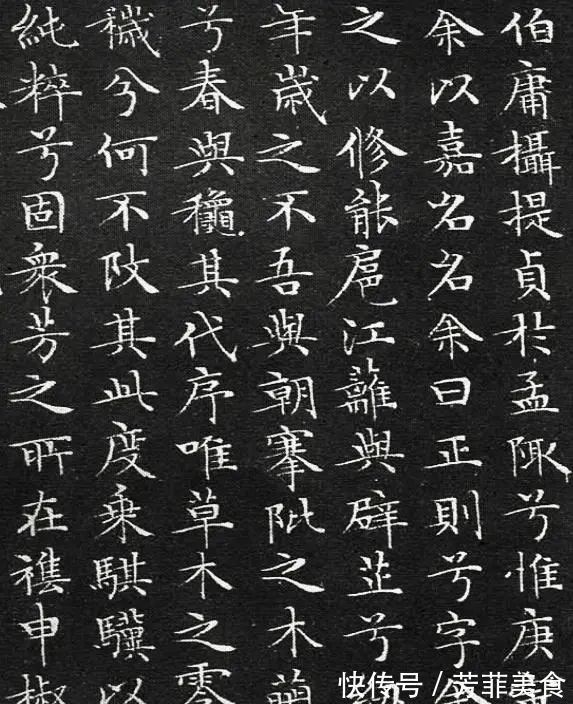 伯庸攝提貞於孟陬兮惟庚
余以嘉名名余曰正則兮字余
之以修能扈江蘺與辟芷兮
年歲之不吾與朝搴阰之木
兮春與龝其代序唯草木之零
穢兮何不改其此度乘騏驥以
純粹兮固衆芳之所在襍申椒
快传号 / 菲美食